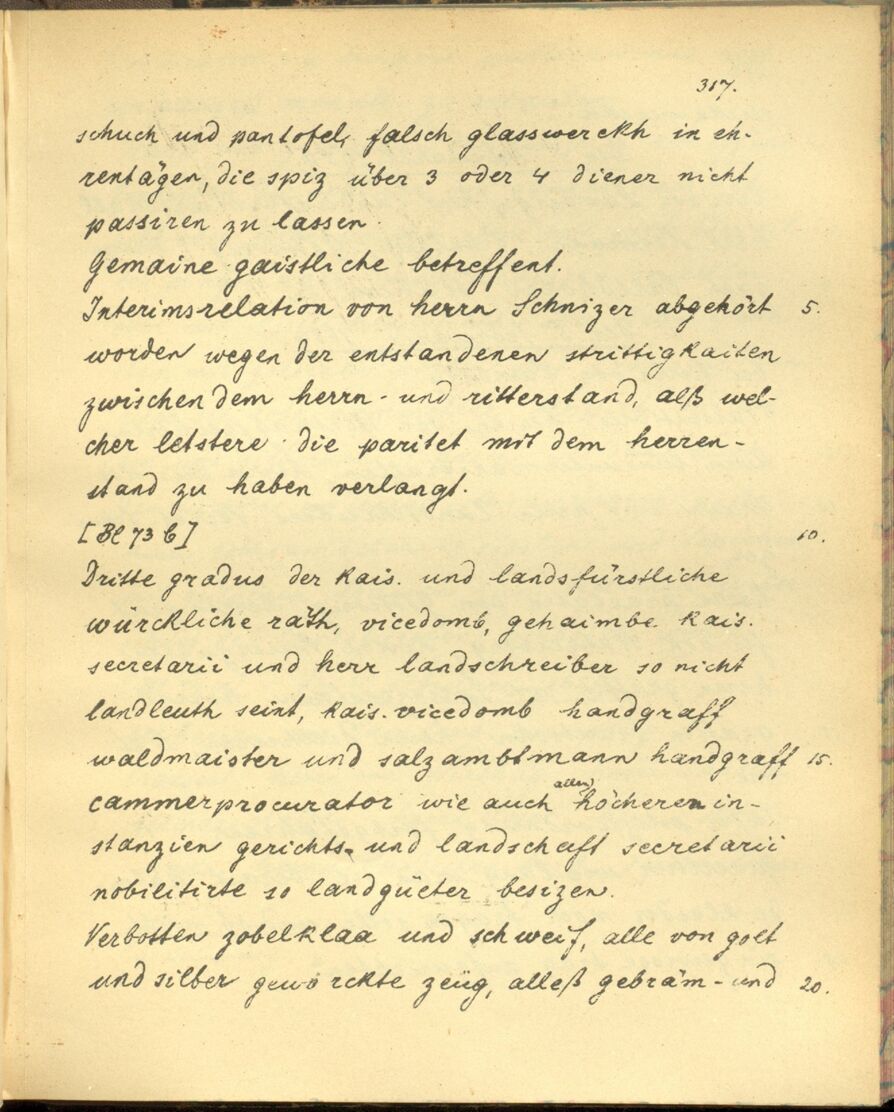 317.
schuch und pantofel, falsch glasswerckh in eh-
rentägen, die spiz über 3 oder 4 diener nicht
passiren zu lassen.
Gemaine gaistliche betreffent.
Interimsrelation von herrn Schnizer abgehört 5.
worden wegen der entstandenen strittigkaiten
zwischen dem herrn- und ritterstand, alß wel-
cher letstere die paritet mit dem herren-
stand zu haben verlangt.
[Bl 73 b] 10.
Dritte gradus der kais. und landsfürstliche
würckliche räth, vicedomb, gehaimbe kais.
secretarii und herr landschreiber so nicht
landleuth seint, kais. vicedomb handgraff
waldmaister und salzambtmann handgraff 15.
cammerprocurator wie auch allen höcheren in-
stanzien gerichts- und landschaft secretarii
nobilitirte so landgüeter besizen.
Verbotten zobelklaa und schweif, alle von golt
und silber gewörckte zeüg, alleß gebräm- und 20.